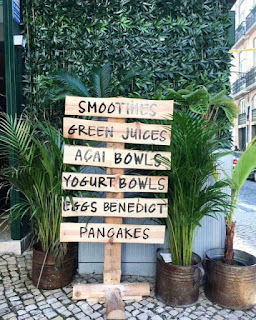 SMOOTIHES
GREEN JUICES
AÇAI BOWLS
YOGURT BOWLS
EGGS BENEDICT
PANCAKES